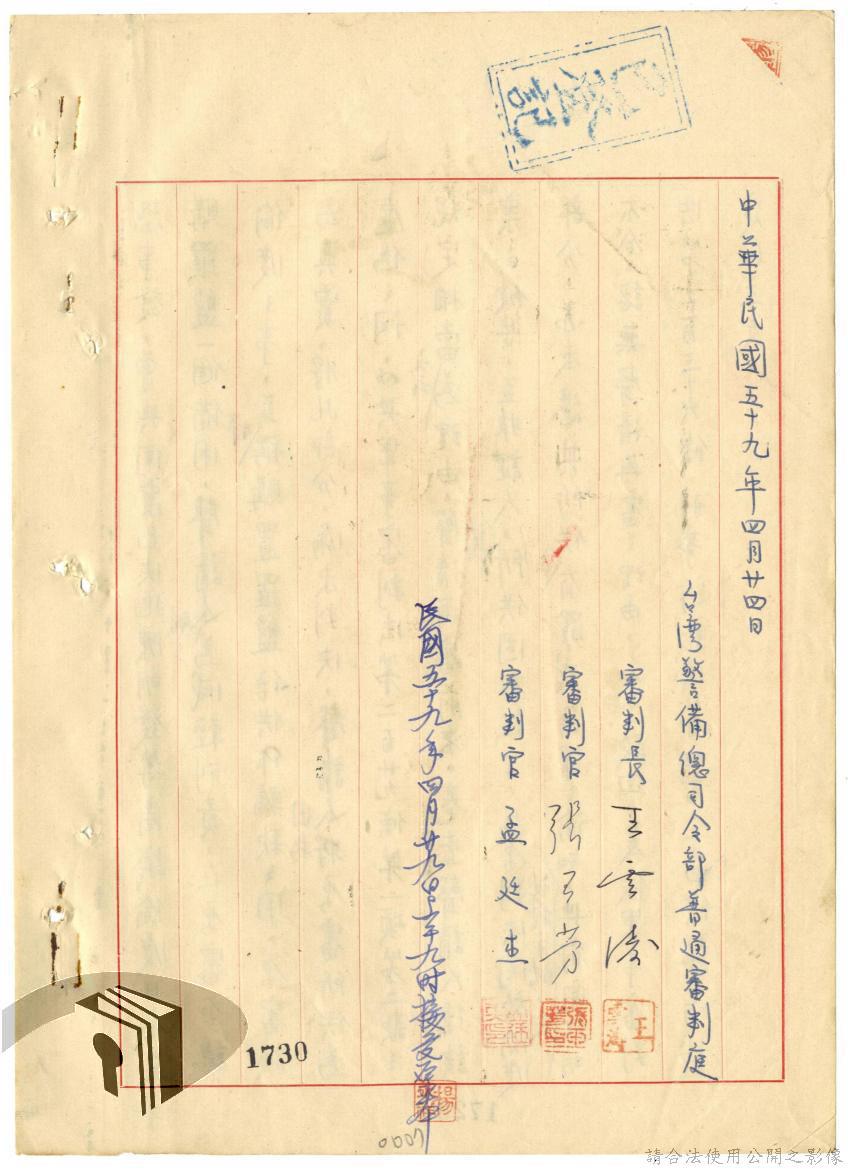 已登記
中華民國五十九年四月廿四日
台灣警備總司令部普通審判庭
審判長 王雲濤
審判官 張玉芳
審判官 孟廷杰
民國五十九年四月廿九日上午九時接受原本
1730
0007
請合法使用公開之影像